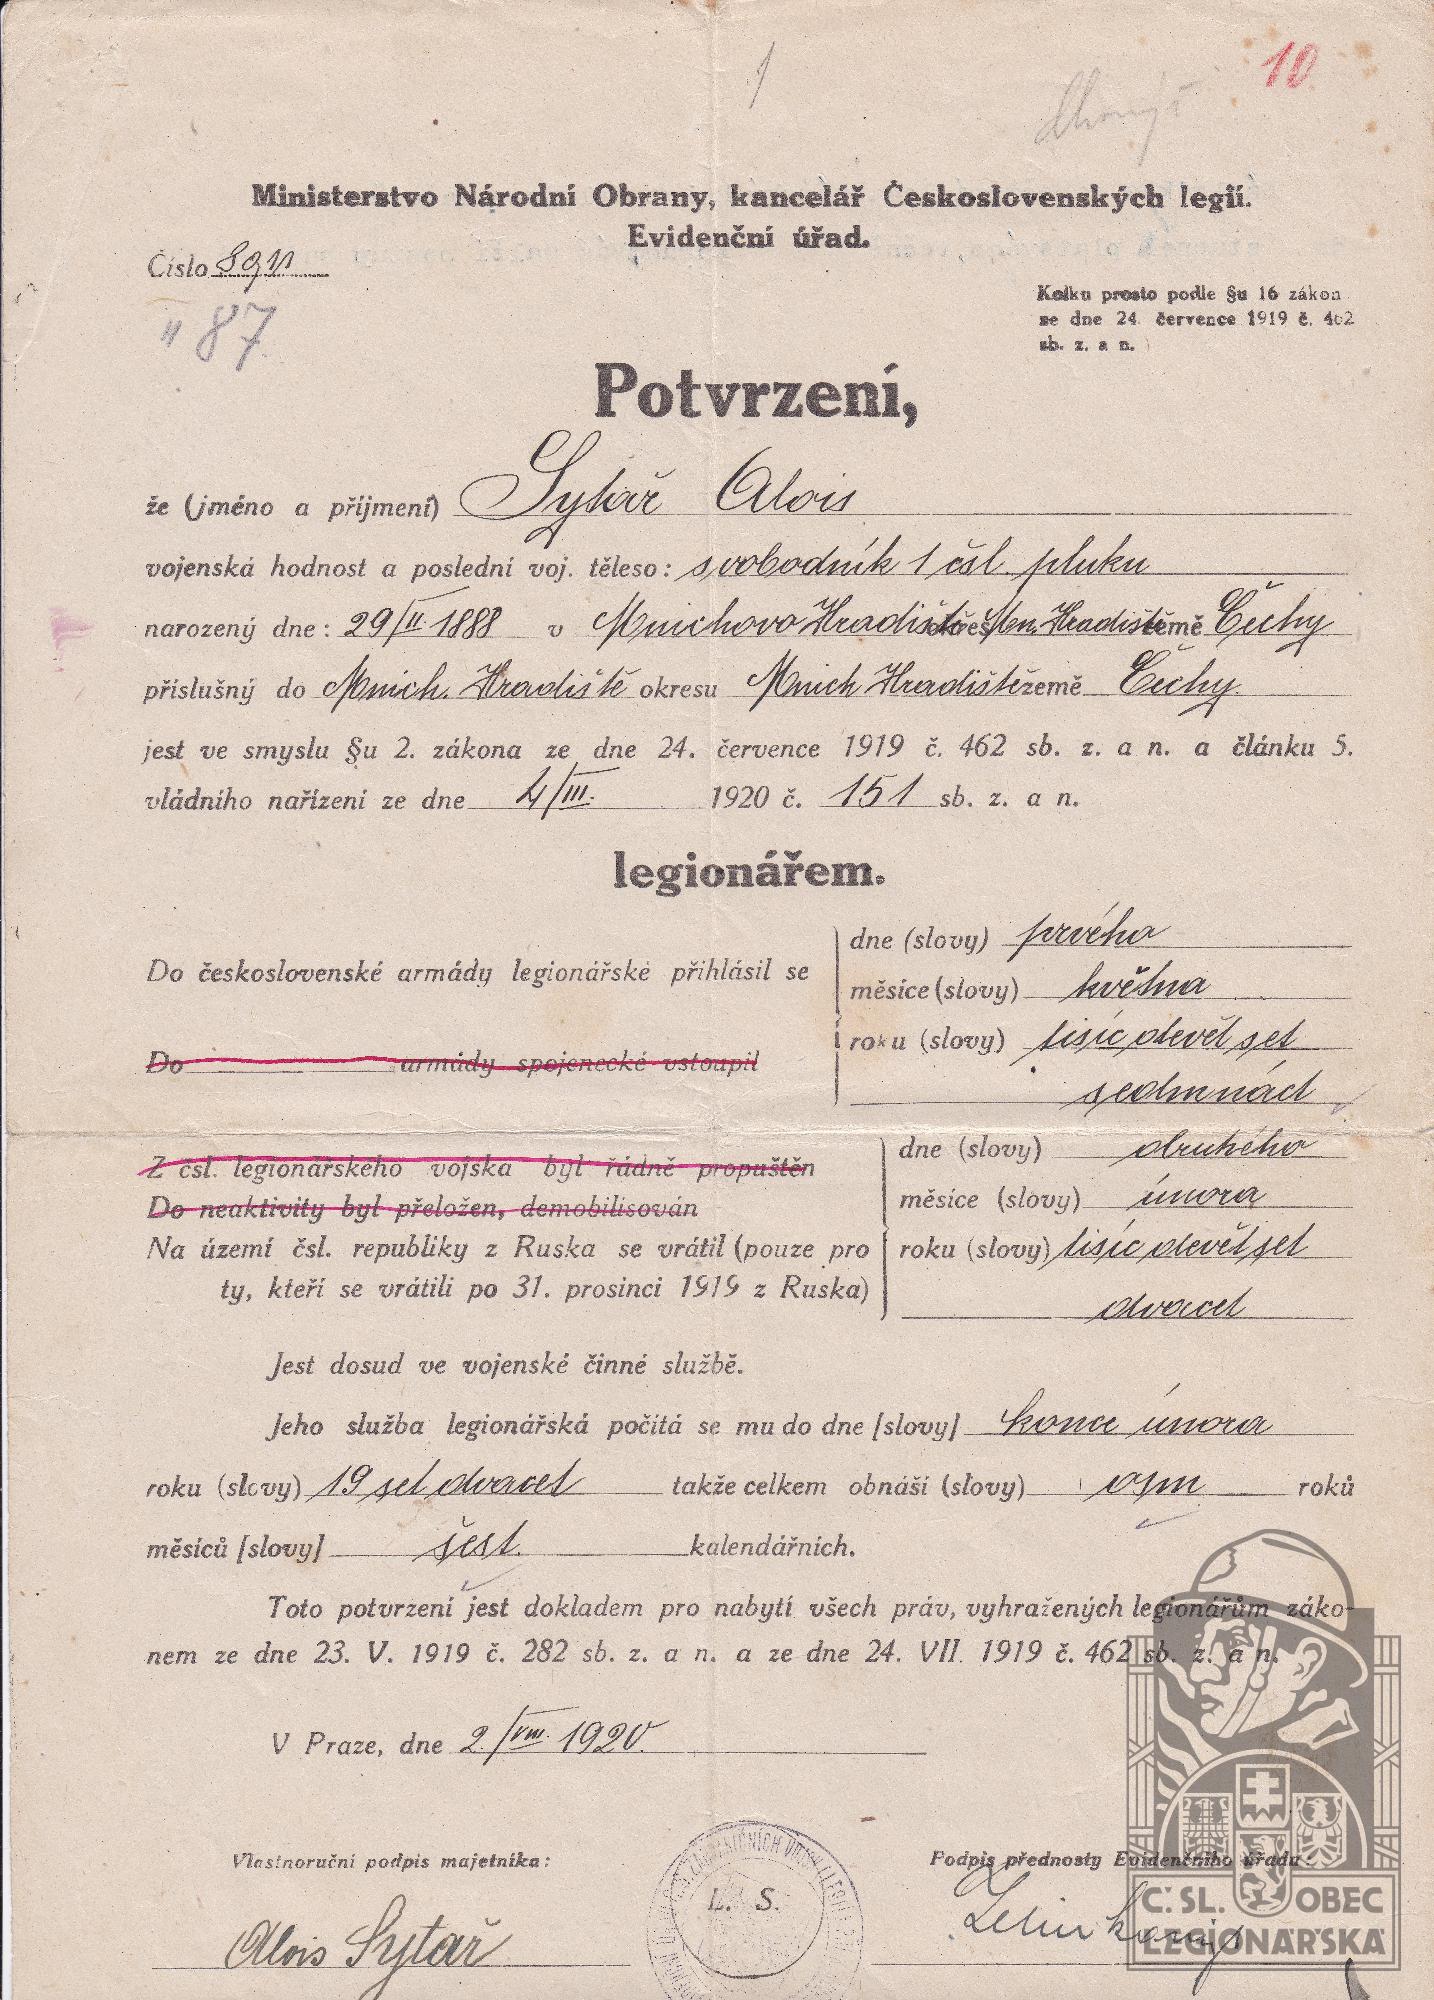 1
10
Ministerstvo Národní Obrany, kancelář Československých legií.
Evidenční úřad.
Číslo 8911
" 87
Kolku prosto podle §u 16 zákon
ze dne 24. července 1919 č. 462
sb. z. a n.
Potvrzení,
že (jméno a příjmení) Sytař Alois
vojenská hodnost a poslední voj. těleso: svobodník 1 čsl. pluku
narozený dne: 29/II. 1888 v Mnichovo Hradiště okres Mn. Hradiště země Čechy
příslušný do Mnich. Hradiště okresu Mnich Hradiště země Čechy.
jest ve smyslu §u 2. zákona ze dne 24. července 1919 č. 462 sb. z. a n. a článku 5.
vládního nařízení ze dne 4/III. 1920 č. 151 sb. z. a n.
legionářem.
Do československé armády legionářské přihlásil se
Do armády spojenecké vstoupil
dne (slovy) prvého
měsíce (slovy) května
roku (slovy) tisíc devět set
sedmnáct
Z čsl. legionářského vojska byl řádně propuštěn
Do neaktivity byl přeložen, demobilisován
Na území čsl. republiky z Ruska se vrátil (pouze pro
ty, kteří se vrátili po 31. prosinci 1919 z Ruska)
dne (slovy) druhého
měsíce (slovy) února
roku (slovy) tisíc devět set
dvacet
Jest dosud ve vojenské činné službě.
Jeho služba legionářská počítá se mu do dne [slovy] konce února
roku (slovy) 19 set dvacet takže celkem obnáší (slovy) osm roků
měsíců [slovy] šest. kalendářních.
Toto potvrzení jest dokladem pro nabytí všech práv, vyhražených legionářům záko-
nem ze dne 23. V. 1919 č. 282 sb. z. a n. a ze dne 24. VII. 1919 č. 462 sb. z. a n.
V Praze, dne 2./VIII. 1920.
Vlastnoruční podpis majetníka:
Podpis přednosty Evidenčního úřadu:
L. S.
Alois Sytař
Č.SL. OBEC
LEGIONÁŘSKÁ